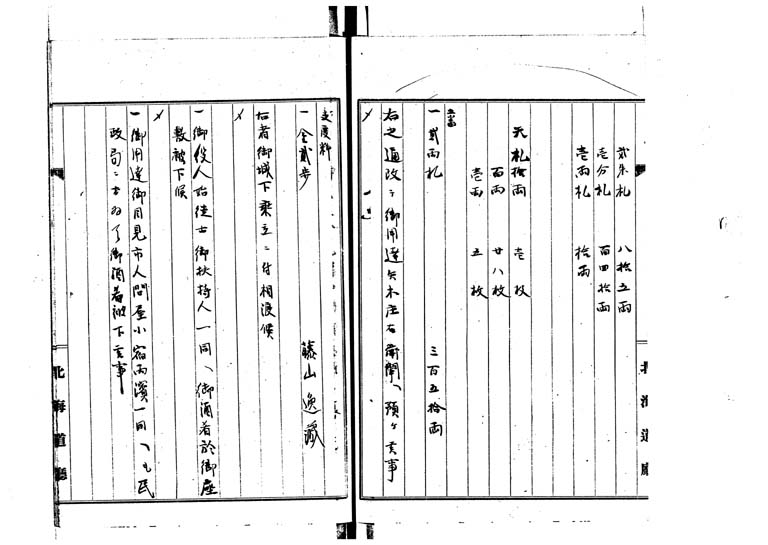 弐朱札　八拾五両
壱分札　百四拾両
壱両札　拾両
天札拾両　壱枚
百両　廿八枚
壱両　五枚
一弐両札　三百五拾両
右之通改ニ御用達矢木庄右衛門へ預ケ候事
支度料
一金弐歩　藤山逸蔵
右者御城下乗立ニ付相渡候
一御役人始徒士御扶持人一同へ御酒肴於御座
敷被下候
一御用達御目見市人問屋小宿両濱一同へも民
政局ニおゐて御酒肴被下候事
北海道廳